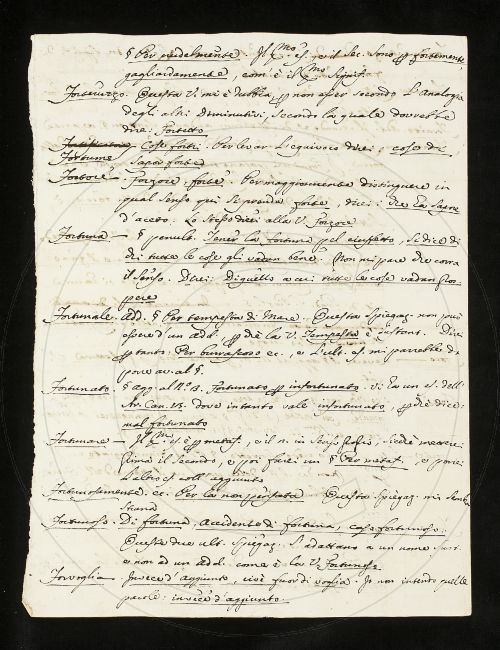 § Per crudelmente. Il p.mo es. e il Sec. sono p fortemente,
gagliardamente, com' è il p.mo signif.
Forteruzzo. Questa V. mi è dubbia, p non esser secondo l'Analogia
degli altri Diminutivi, secondo la quale dovrebbe
dire: Fortetto
Cose forti. Per levar l'equivoco direi: cose di
Fortume sapor forte
Fortore. Forzore, forte. Per maggiormente distinguere in
qual senso qui si prenda forte, direi: Che ha sapore
d'aceto. Lo stesso dico alla V. Forzore
Fortuna — § penult. Tener la fortuna pel ciuffetto, si dice di
chi tutte le cose gli vadan bene. Non mi pare che corra
il senso. Direi: Di quello a cui tutte le cose vadan pro-
spere
Fortunale. Add. § Per tempesta di Mare. Questa spiegaz. non può
essere d'un add. p chè la V. Tempesta è sustant. Direi
p tanto: Per burrascoso ec., e l'ult. es. mi parrebbe da
porre av. al §.
Fortunato. § agg. al N.° B. Fortunato p infortunato. V. ha un es. dell'
Ar. Can. 13. dove intanto vale infortunato, p chè dice:
mal fortunato
Fortunare — Il p.mo es. è p metaf., e il n. in senso proprio, si dee mettere
prima il secondo, e poi fare un § Per metaf. e porre
l'altro es. coll' aggiunto
Fortunosamente. ec. Per la non pensata — Questa spiegaz. mi sembra
strana
Fortunoso. Di fortuna, accidente di fortuna, caso fortunoso.
Queste due ult. spiegaz. s'adattano a un nome sust.
e non ad un add. come è la V. Fortunoso
Forvoglia — Invece d'aggiunto, cioè fuor di voglia. Io non intendo quelle
parole: invece d'aggiunto.